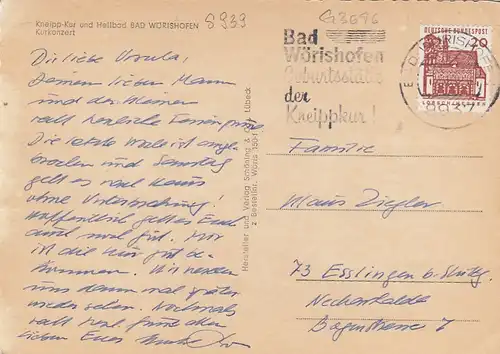 Kneipp-Kur und Heilbad BAD WÖRISHOFEN
Kurkonzert
8933
G3696
Bad
Wörishofen
Geburtsstätte
der
Kneippkur!
DEUTSCHE BUNDESPOST
20
Die liebe Ursula,
Deinem lieben Mann
und den Kleinen
recht herzliche Feriengrüße
Die letzte Woche ist ange-
brochen und Samstag
geht es nach Haus
ohne Unterbrechung!
Hoffentlich geht es Euch
auch noch gut. Mir
ist die Kur gut be-
kommen. Wir werden
uns dann mal später
wieder sehen. Nochmals
recht herzl. Grüße allen
Euer
Hersteller und Verlag Schöning & Co., Lübeck
z Bestellnr. Wöris 150
Familie
Klaus Ziegler
73 Esslingen b. Stuttg.
Neckarhalde